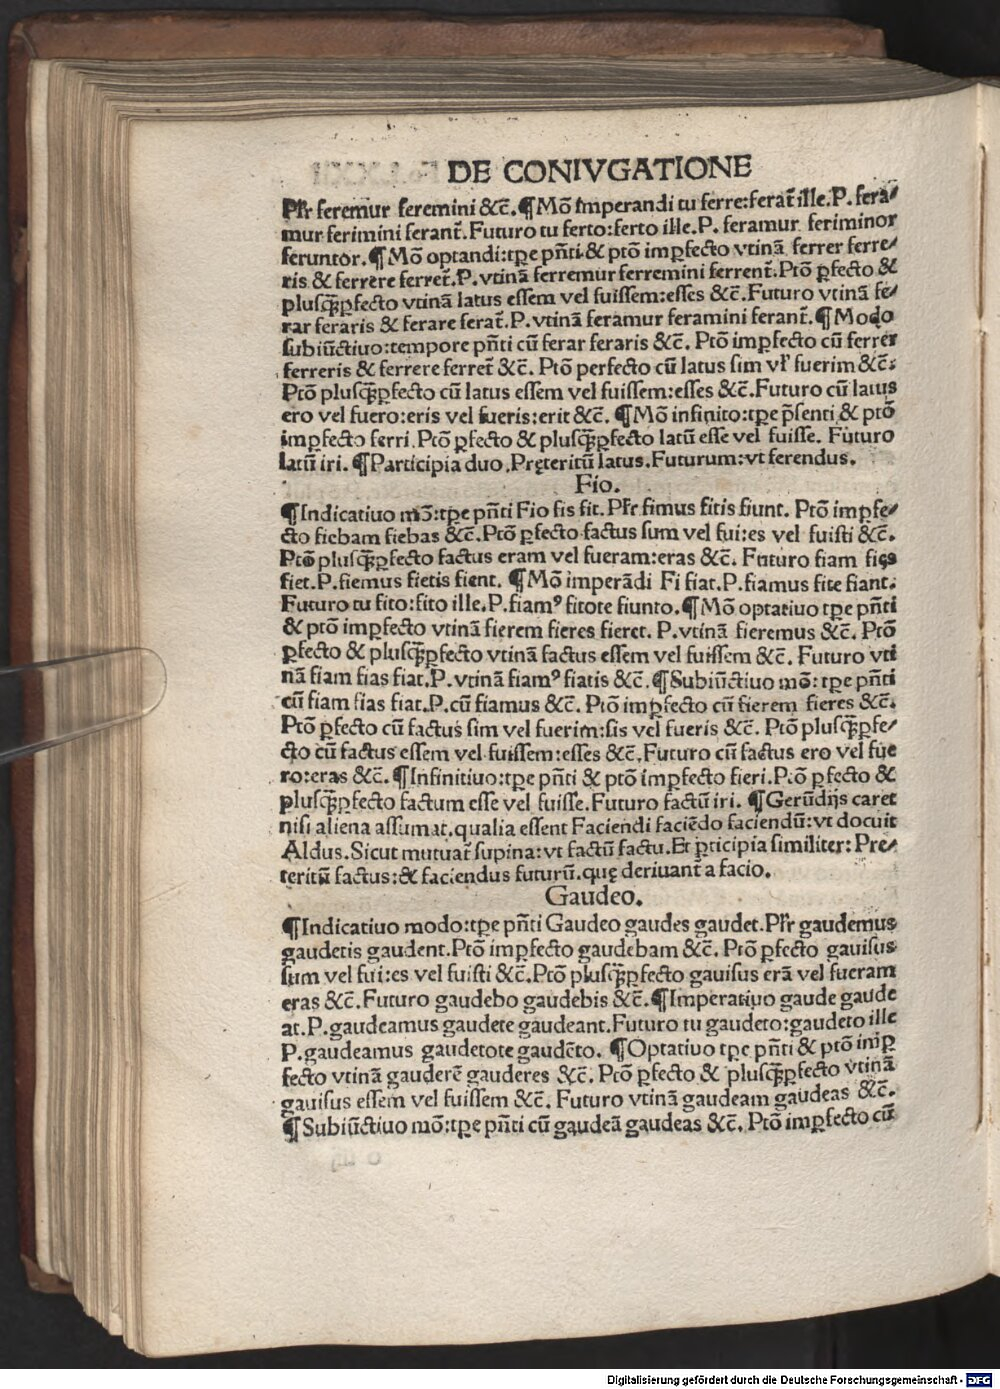 DE CONIVGATIONE
Pl̃r feremur feremini &c̄.¶Mõ imperandi tu ferre:ferat̃ ille.P. fera⸗
mur ferimini ferant̃. Futuro tu ferto:ferto ille.P. feramur feriminor
feruntor.¶Mõ optandi:tp̱e pñti.& ptõ imp̱fecto vtinã ferrer ferre⸗
ris & ferrere ferret̃.P. vtinã ferremur ferremini ferrent̃. Ptõ p̱fecto &
plusq̃p̱fecto vtinã latus essem vel fuissem:esses &c̄.Futuro vtinã fe⸗
rar feraris & ferare ferat̃.P. vtinã feramur feramini ferant̃.¶Modo
subiũctiuo:tempore pñti cũ ferar feraris &c̄. Ptõ imp̱fecto cũ ferrer
ferreris & ferrere ferret̃ &c̄. Ptõ perfecto cũ latus sim vl̃ fuerim &c̄:
Ptõ plusq̃p̱fecto cũ latus essem vel fuissem:esses &c̄.Futuro cũ latus
ero vel fuero:eris vel fueris:erit &c̄. ¶Mõ infinito:tp̱e p̃senti & ptõ
imp̱fecto ferri. Ptõ p̱fecto & plusq̃p̱fecto latũ esse vel fuisse. Futuro
latũ iri. ¶Participia duo. Pręteritũ latus. Futurum:vt ferendus.
Fio.
¶Indicatiuo mõ:tp̱e pñti Fio fis fit. Pl̃r fimus fitis fiunt. Ptõ imp̱fe⸗
cto fiebam fiebas &c̄.Ptõ p̱fecto factus sum vel fui:es vel fuisti &c̄.
Ptõ plusq̃p̱fecto factus eram vel fueram:eras &c̄. Futuro fiam fies
fiet.P.fiemus fietis fient. ¶Mõ imperãdi Fi fiat.P.fiamus fite fiant.
Futuro tu fito:fito ille.P.fiamꝰ fitote fiunto.¶Mõ optatiuo tp̱e pñti
& ptõ imp̱fecto vtinã fierem fieres fieret. P.vtinã fieremus &c̄. Ptõ
p̱fecto & plusq̃p̱fecto vtinã factus essem vel fuissem &c̄. Futuro vti
nã fiam fias fiat.P.vtinã fiamꝰ fiatis &c̄.¶Subiũctiuo mõ:tp̱e pñti
cũ fiam fias fiat.P.cũ fiamus &c̄. Ptõ imp̱fecto cũ fierem fieres &c̄.
Ptõ p̱fecto cũ factus sim vel fuerim:sis vel fueris &c̄. Ptõ plusq̃p̱fe⸗
cto cũ factus essem vel fuissem:esses &c̄.Futuro cũ factus ero vel fue
ro:eras &c̄. ¶Infinitiuo:tp̱e pñti & ptõ imp̱fecto fieri. Ptõ p̱fecto &
plusq̃p̱fecto factum esse vel fuisse. Futuro factũ iri. ¶Gerũdijs caret
nisi aliena assumat.qualia essent Faciendi faciẽdo faciendũ:vt docuit
Aldus. Sicut mutuat̃ supina:vt factũ factu. Et p̱ticipia similiter: Pre⸗
teritũ factus:& faciendus futurũ.quę deriuant̃ a facio.
Gaudeo.
¶Indicatiuo modo:tp̱e pñti Gaudeo gaudes gaudet.Pl̃r gaudemus
gaudetis gaudent.Ptõ imp̱fecto gaudebam &c̄. Ptõ p̱fecto gauisus
sum vel fui:es vel fuisti &c̄.Ptõ plusq̃p̱fecto gauisus erã vel fueram
eras &c̄. Futuro gaudebo gaudebis &c̄.¶Imperatiuo gaude gaude
at.P.gaudeamus gaudete gaudeant.Futuro tu gaudeto:gaudeto ille
P.gaudeamus gaudetote gaudẽto. ¶Optatiuo tp̱e pñti & ptõ imp̱
fecto vtinã gauderẽ gauderes &c̄. Ptõ p̱fecto & plusq̃p̱fecto vtinã
gauisus essem vel fuissem &c̄. Futuro vtinã gaudeam gaudeas &c̄.
¶Subiũctiuo mõ:tp̱e pñti cũ gaudeã gaudeas &c̄. Ptõ imp̱fecto cũ
Digitalisierung gefördert durch die Deutsche Forschungsgemeinschaft - DFG